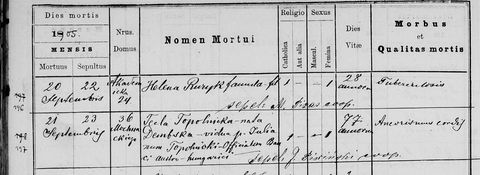 Dies mortis
1905.
MENSIS
Mortuus Sepultus
Nrus. Domus
Nomen Mortui
Religio
Catholica
Aut alia
Sexus
Mascul.
Femina
Dies Vitæ
Morbus et Qualitas mortis
20 22 Helena famula 1 — — 1 28 Tuberculosis
Septembris 24 annorum
sepel. coop.
21 23 36 Tecla Topolnicka nata 1 — — 1 77 Aneurismus cordis
Septembris Dembska - vidua p. Julia annorum
num Topolnicki - Officialem Ban
ci austro-hungarici
sepel. J. coop.